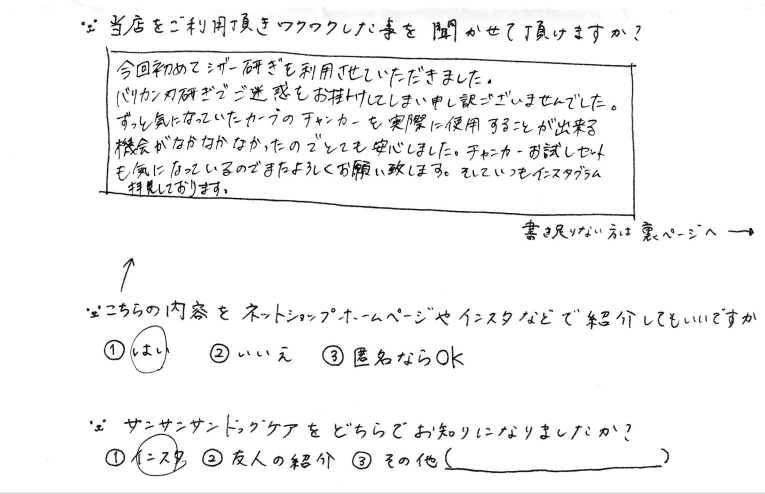 当店をご利用頂きワクワクした事を聞かせて頂けますか?
今回初めてシザー研ぎを利用させていただきました。
バリカン刃研ぎでご迷惑をお掛けしてしまい申し訳ございませんでした。
ずっと気になっていたカーブのチャンカーを実際に使用することが出来る
機会がなかなかなかったのでとても安心しました。チャンカーお試しセット
も気になっているのでまたよろしくお願い致します。そしていつもインスタグラム
拝見しております。
書き足りない方は裏ページへ→
↑
こちらの内容をネットショップホームページやインスタなどで紹介してもいいですか
①はい ②いいえ ③匿名ならOK
サンサンサンドッグケアをどちらでお知りになりましたか?
①インスタ ②友人の紹介 ③その他( )